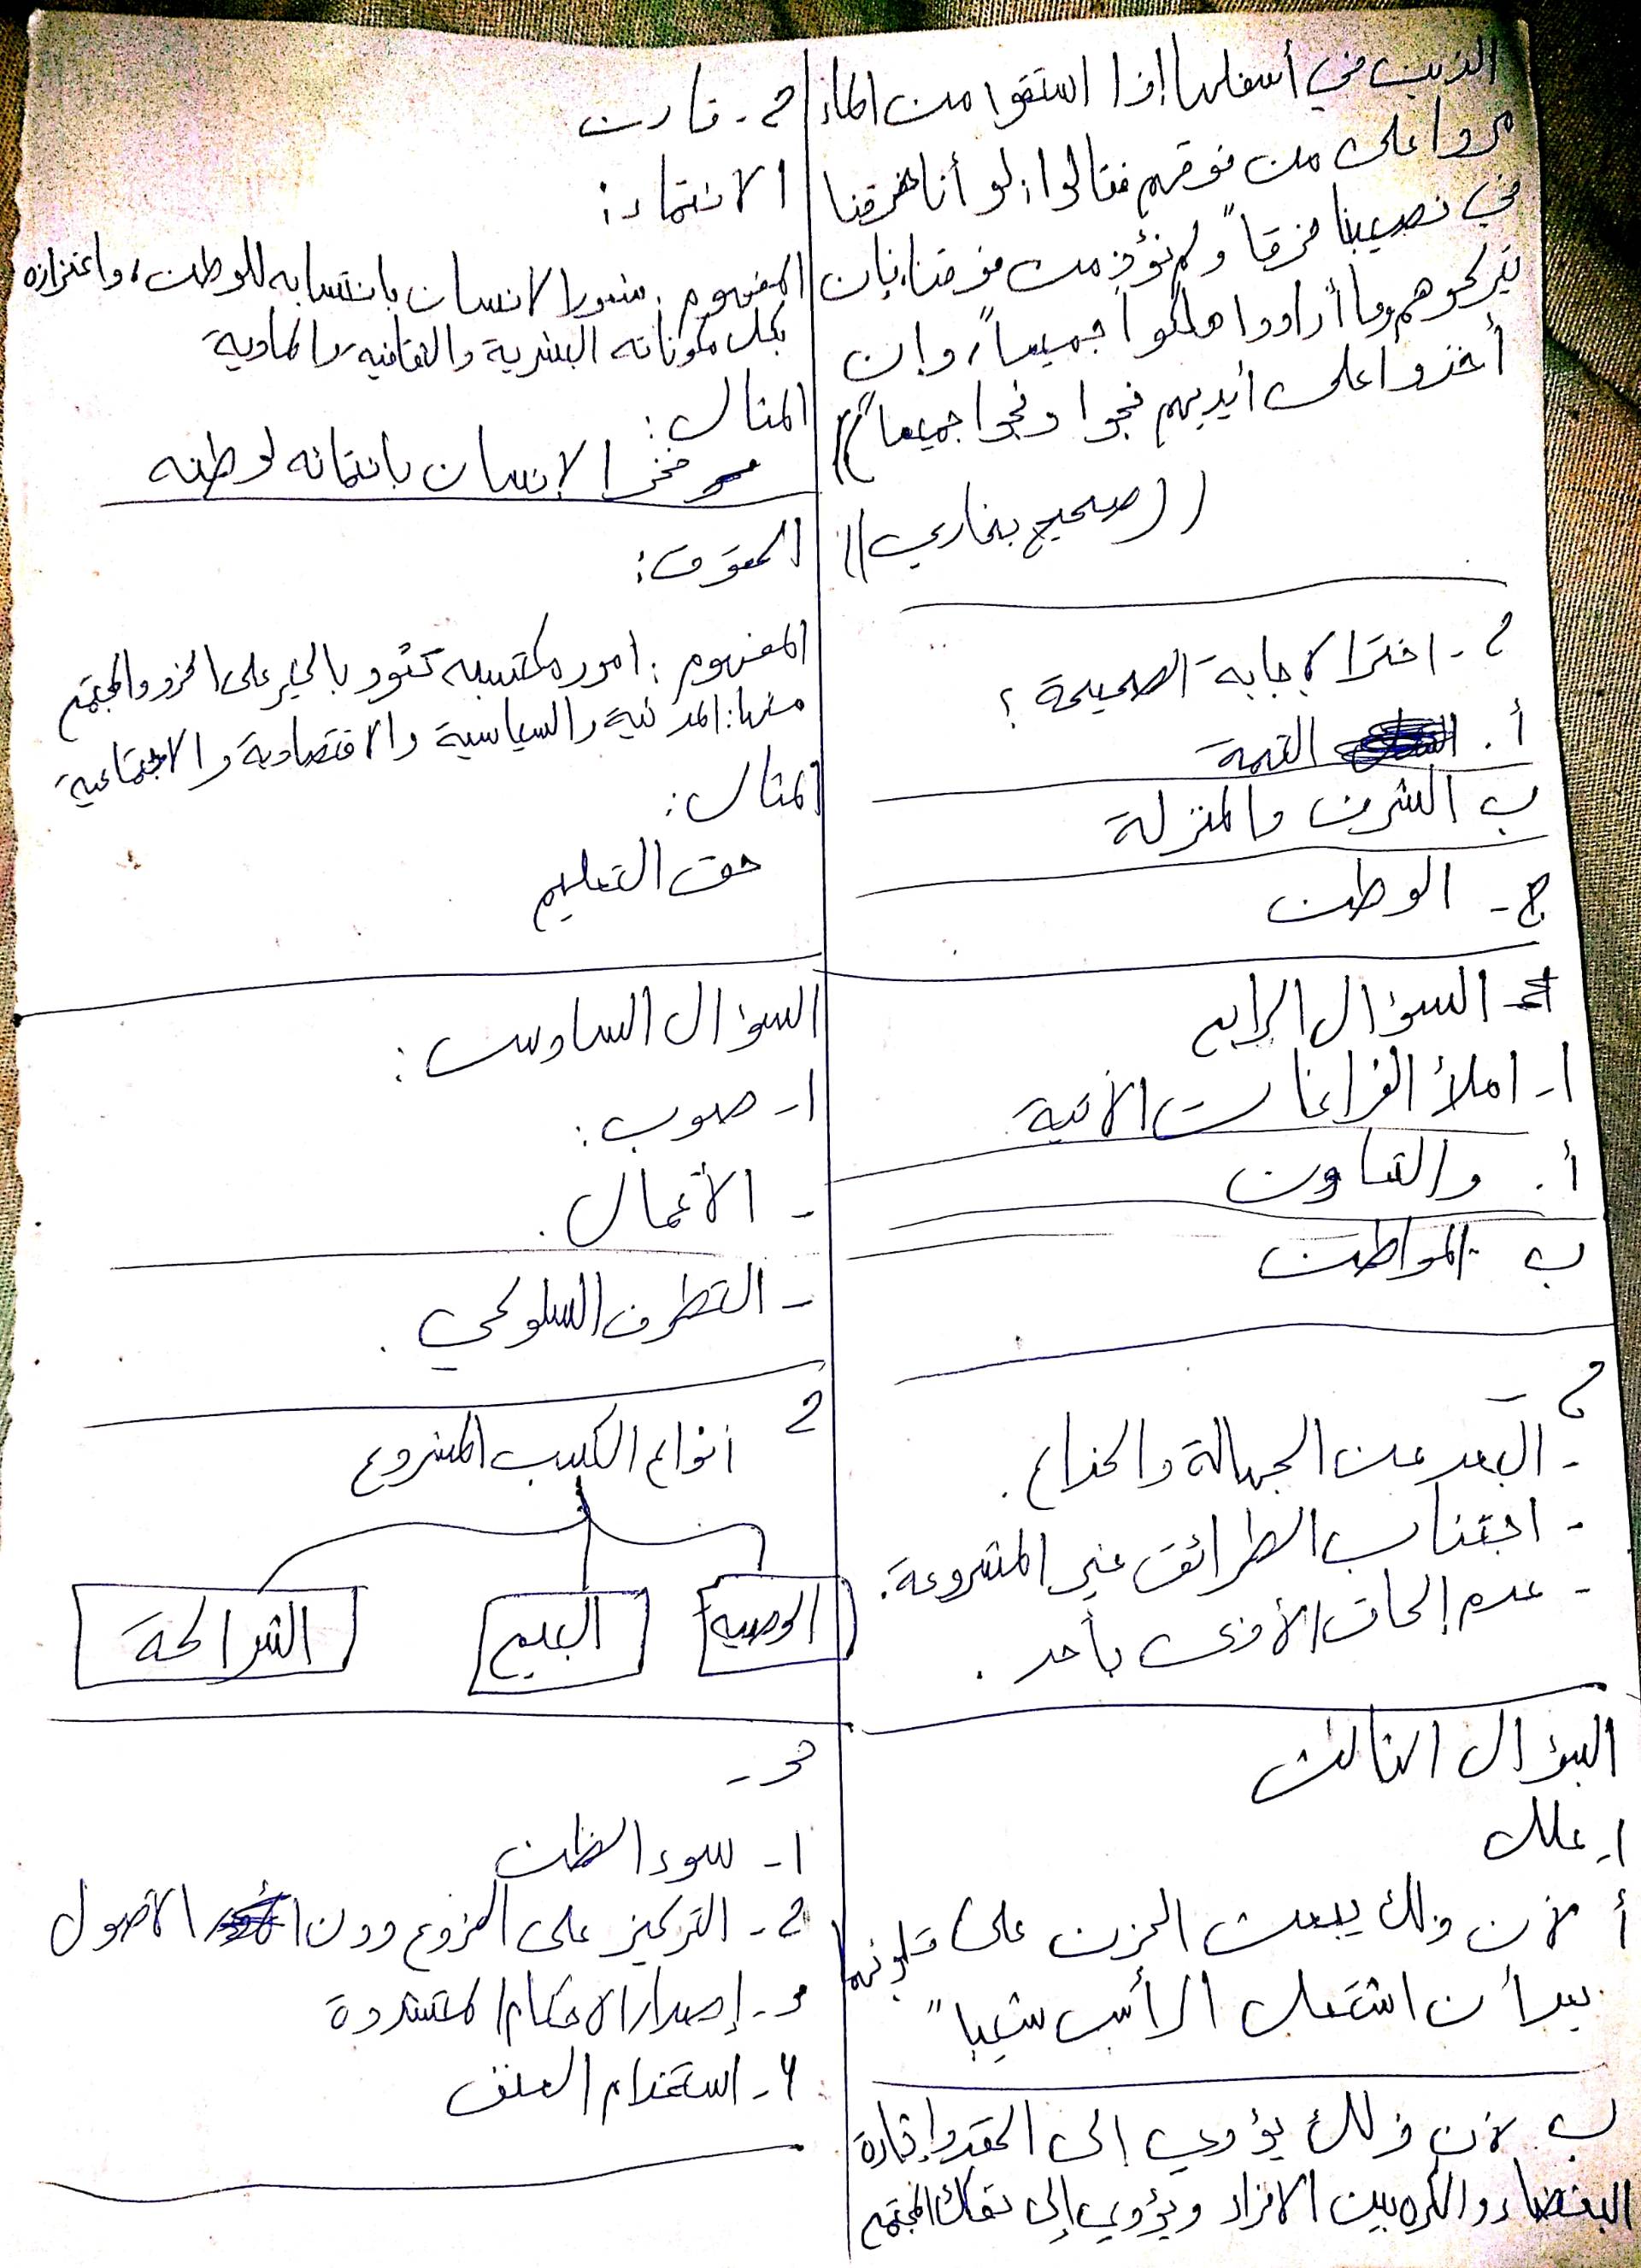 الذين في أسفلها إذا استقوا من الماء
مروا على من فوقهم فقالوا: لو أنا خرقنا
في نصيبنا خرقاً ولم نؤذِ من فوقنا، فإن
تركوهم وما أرادوا هلكوا جميعاً، وإن
أخذوا على أيديهم نجوا ونجوا جميعاً))
((صحيح بخاري))
2- اختر الإجابة الصحيحة؟
أ. القمة
ب الشرف والمنزلة
ج- الوطن
السؤال الرابع
1- املأ الفراغات الآتية
أ. والتعاون
ب - المواطن
2-
- البعد عن الجهالة والخداع.
- اجتناب الطرائق غير المشروعة.
- عدم إلحاق الأذى بأحد.
السؤال الثالث
1- علل
أ لأن ذلك يبعث الحزن على قلوبهما
بعد أن اشتعل الرأس شيباً
ب. لأن ذلك يؤدي إلى الحقد وإثارة
البغضاء والكره بين الافراد ويؤدي إلى تفكك المجتمع
2- قارن
الانتماء:
المفهوم: شعور الانسان بانتسابه للوطن، واعتزازه
بكل مكوناته البشرية والثقافية والمادية
المثال:
فخر الإنسان بانتمائه لوطنه
الحقوق:
المفهوم: امور مكتسبة تعود بالخير على الفرد والمجتمع
منها: المدنية والسياسية والاقتصادية والاجتماعية
المثال:
حق التعليم
السؤال السادس:
1- صوب:
- الأعمال.
- التطرف السلوكي.
2 انواع الكسب المشروع
الوصية
البيع
الشراكة
3-
1- سوء الظن
2- التركيز على الفروع دون الأصول
3- إصدار الاحكام المتشددة
4- استخدام العنف